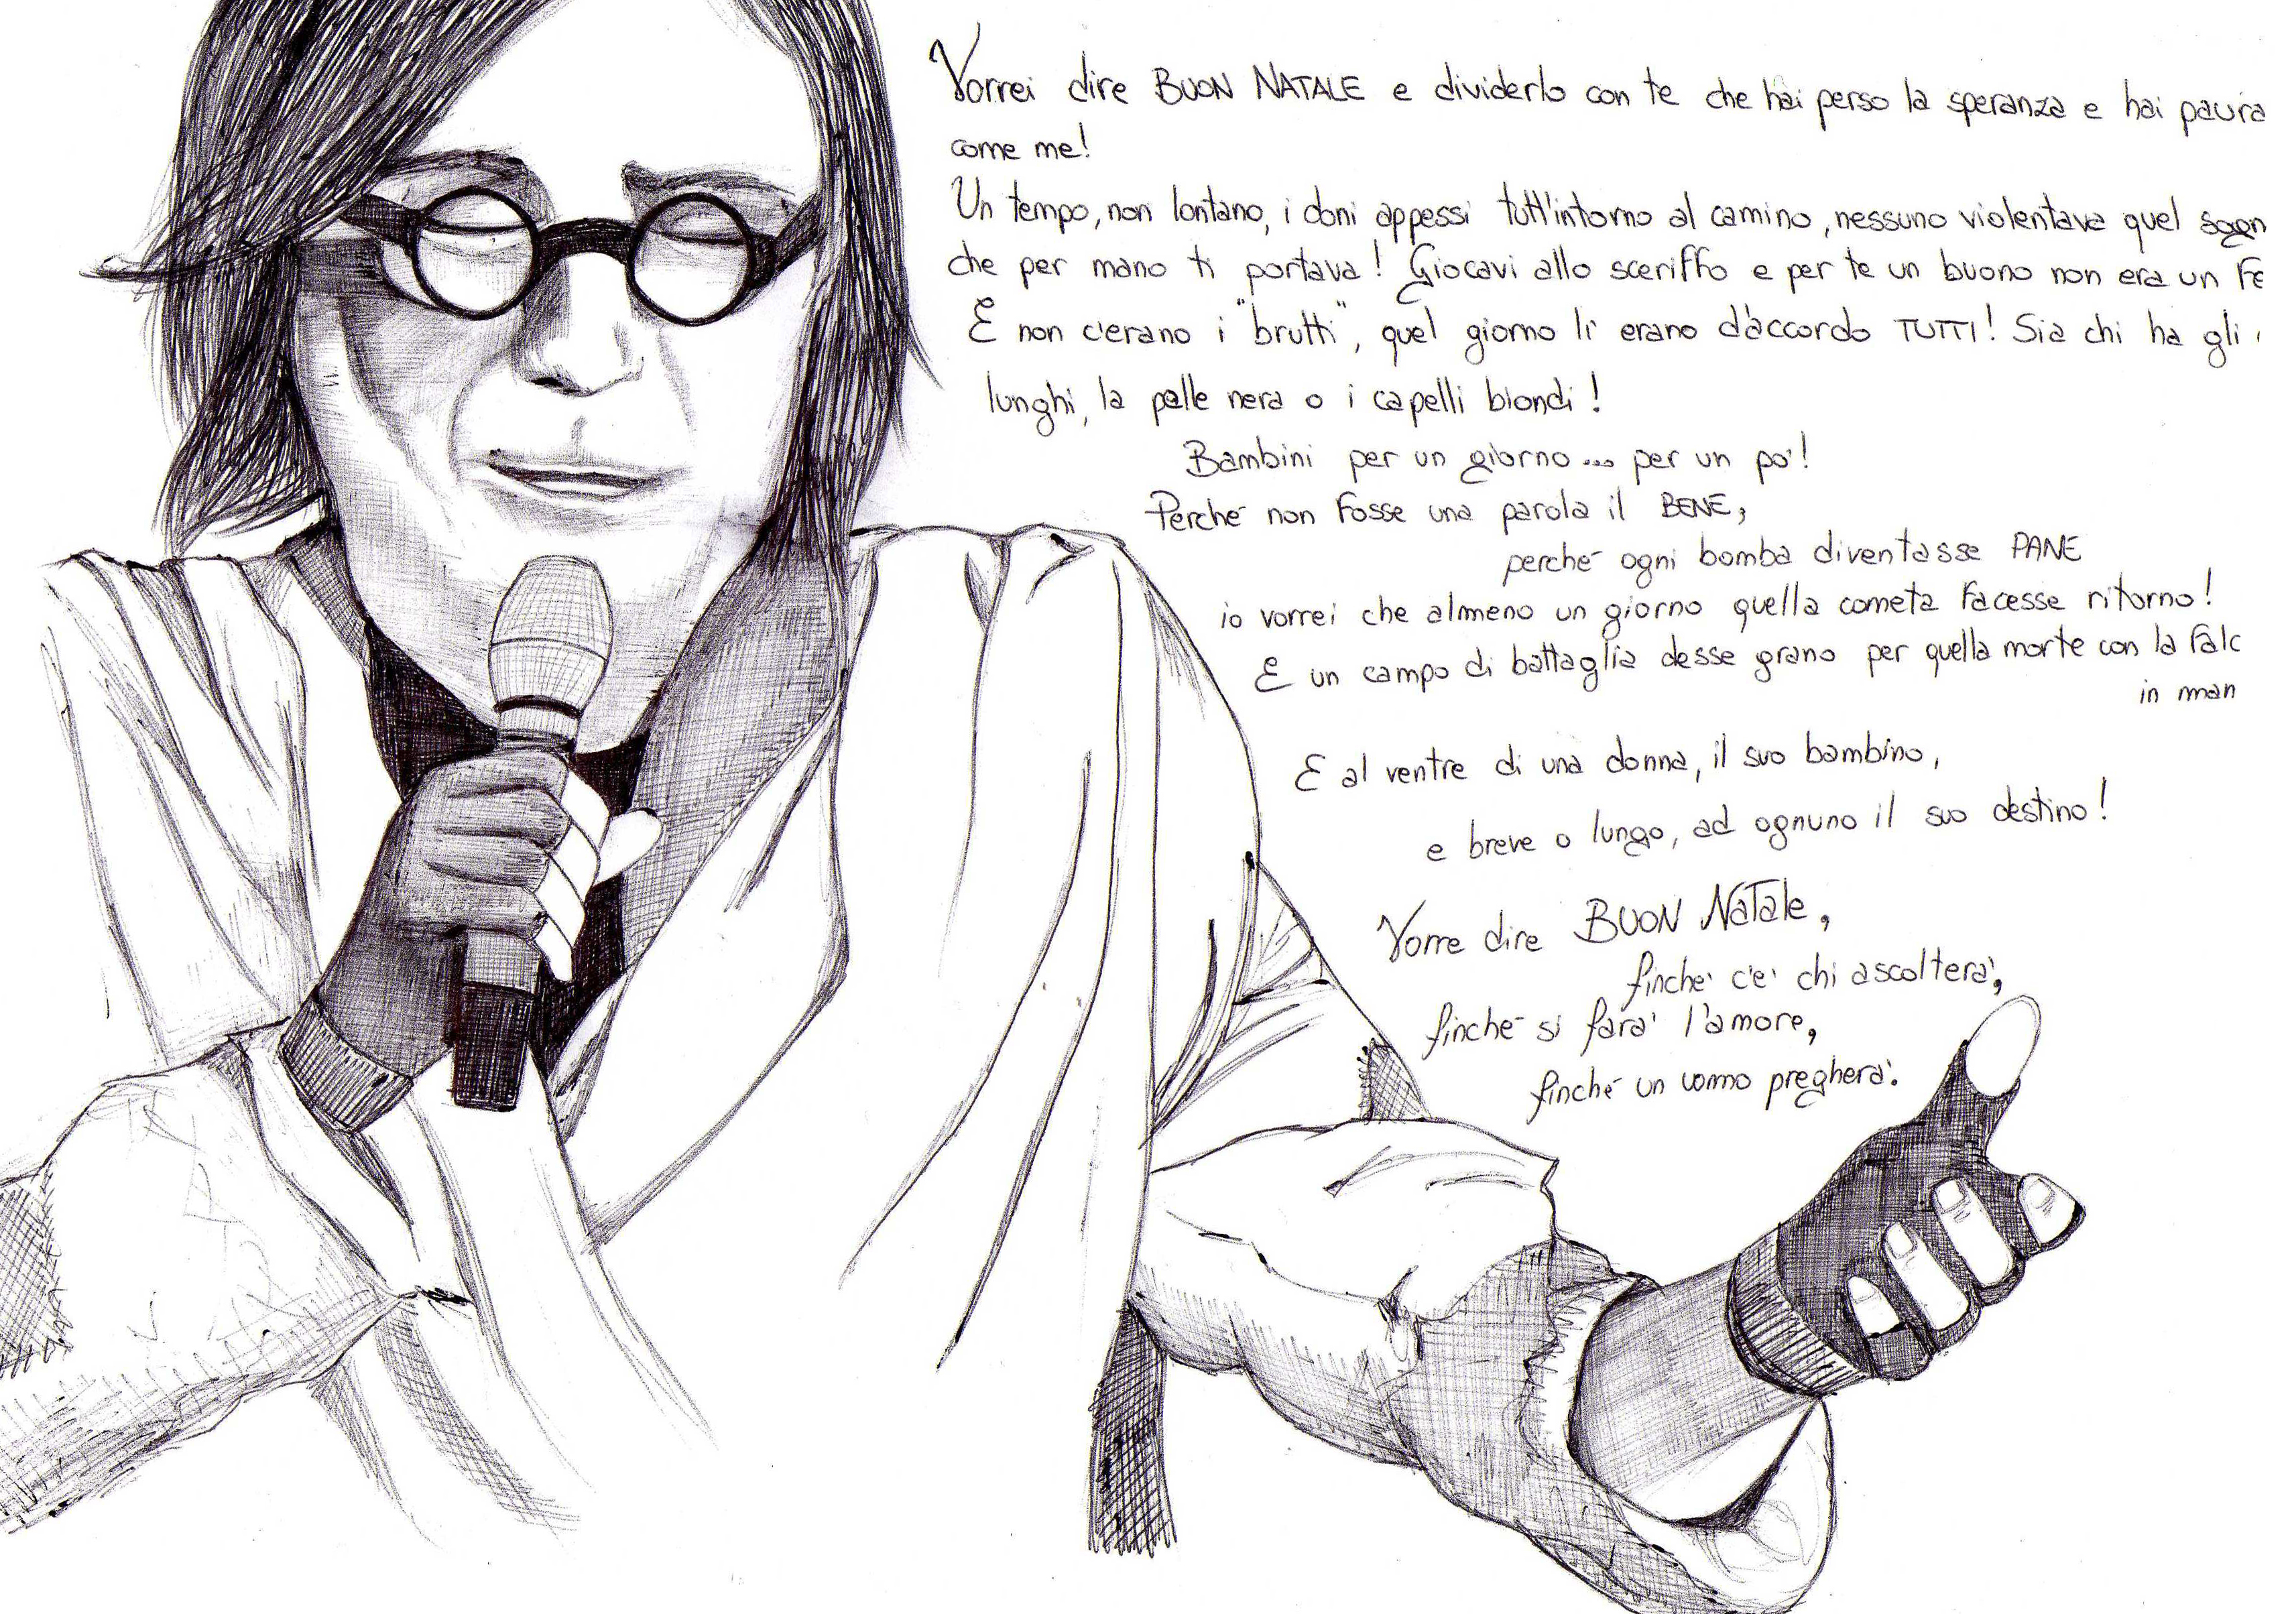 Vorrei dire BUON NATALE e dividerlo con te che hai perso la speranza e hai paura
come me!
Un tempo, non lontano, i doni appessi tutt'intorno al camino, nessuno violentava quel sogn
che per mano ti portava! Giocavi allo sceriffo e per te un buono non era un Fe
E non c'erano i "brutti", quel giorno lì erano d'accordo TUTTI! Sia chi ha gli
lunghi, la pelle nera o i capelli biondi!
Bambini per un giorno... per un po'!
Perché non Fosse una parola il BENE,
perché ogni bomba diventasse PANE
io vorrei che almeno un giorno quella cometa Facesse ritorno!
E un campo di battaglia desse grano per quella morte con la Falc
in man
E al ventre di una donna, il suo bambino,
e breve o lungo, ad ognuno il suo destino!
Vorre dire BUON NATale,
finche' c'e' chi ascolterà,
finché si farà l'amore,
finché un uomo pregherà.